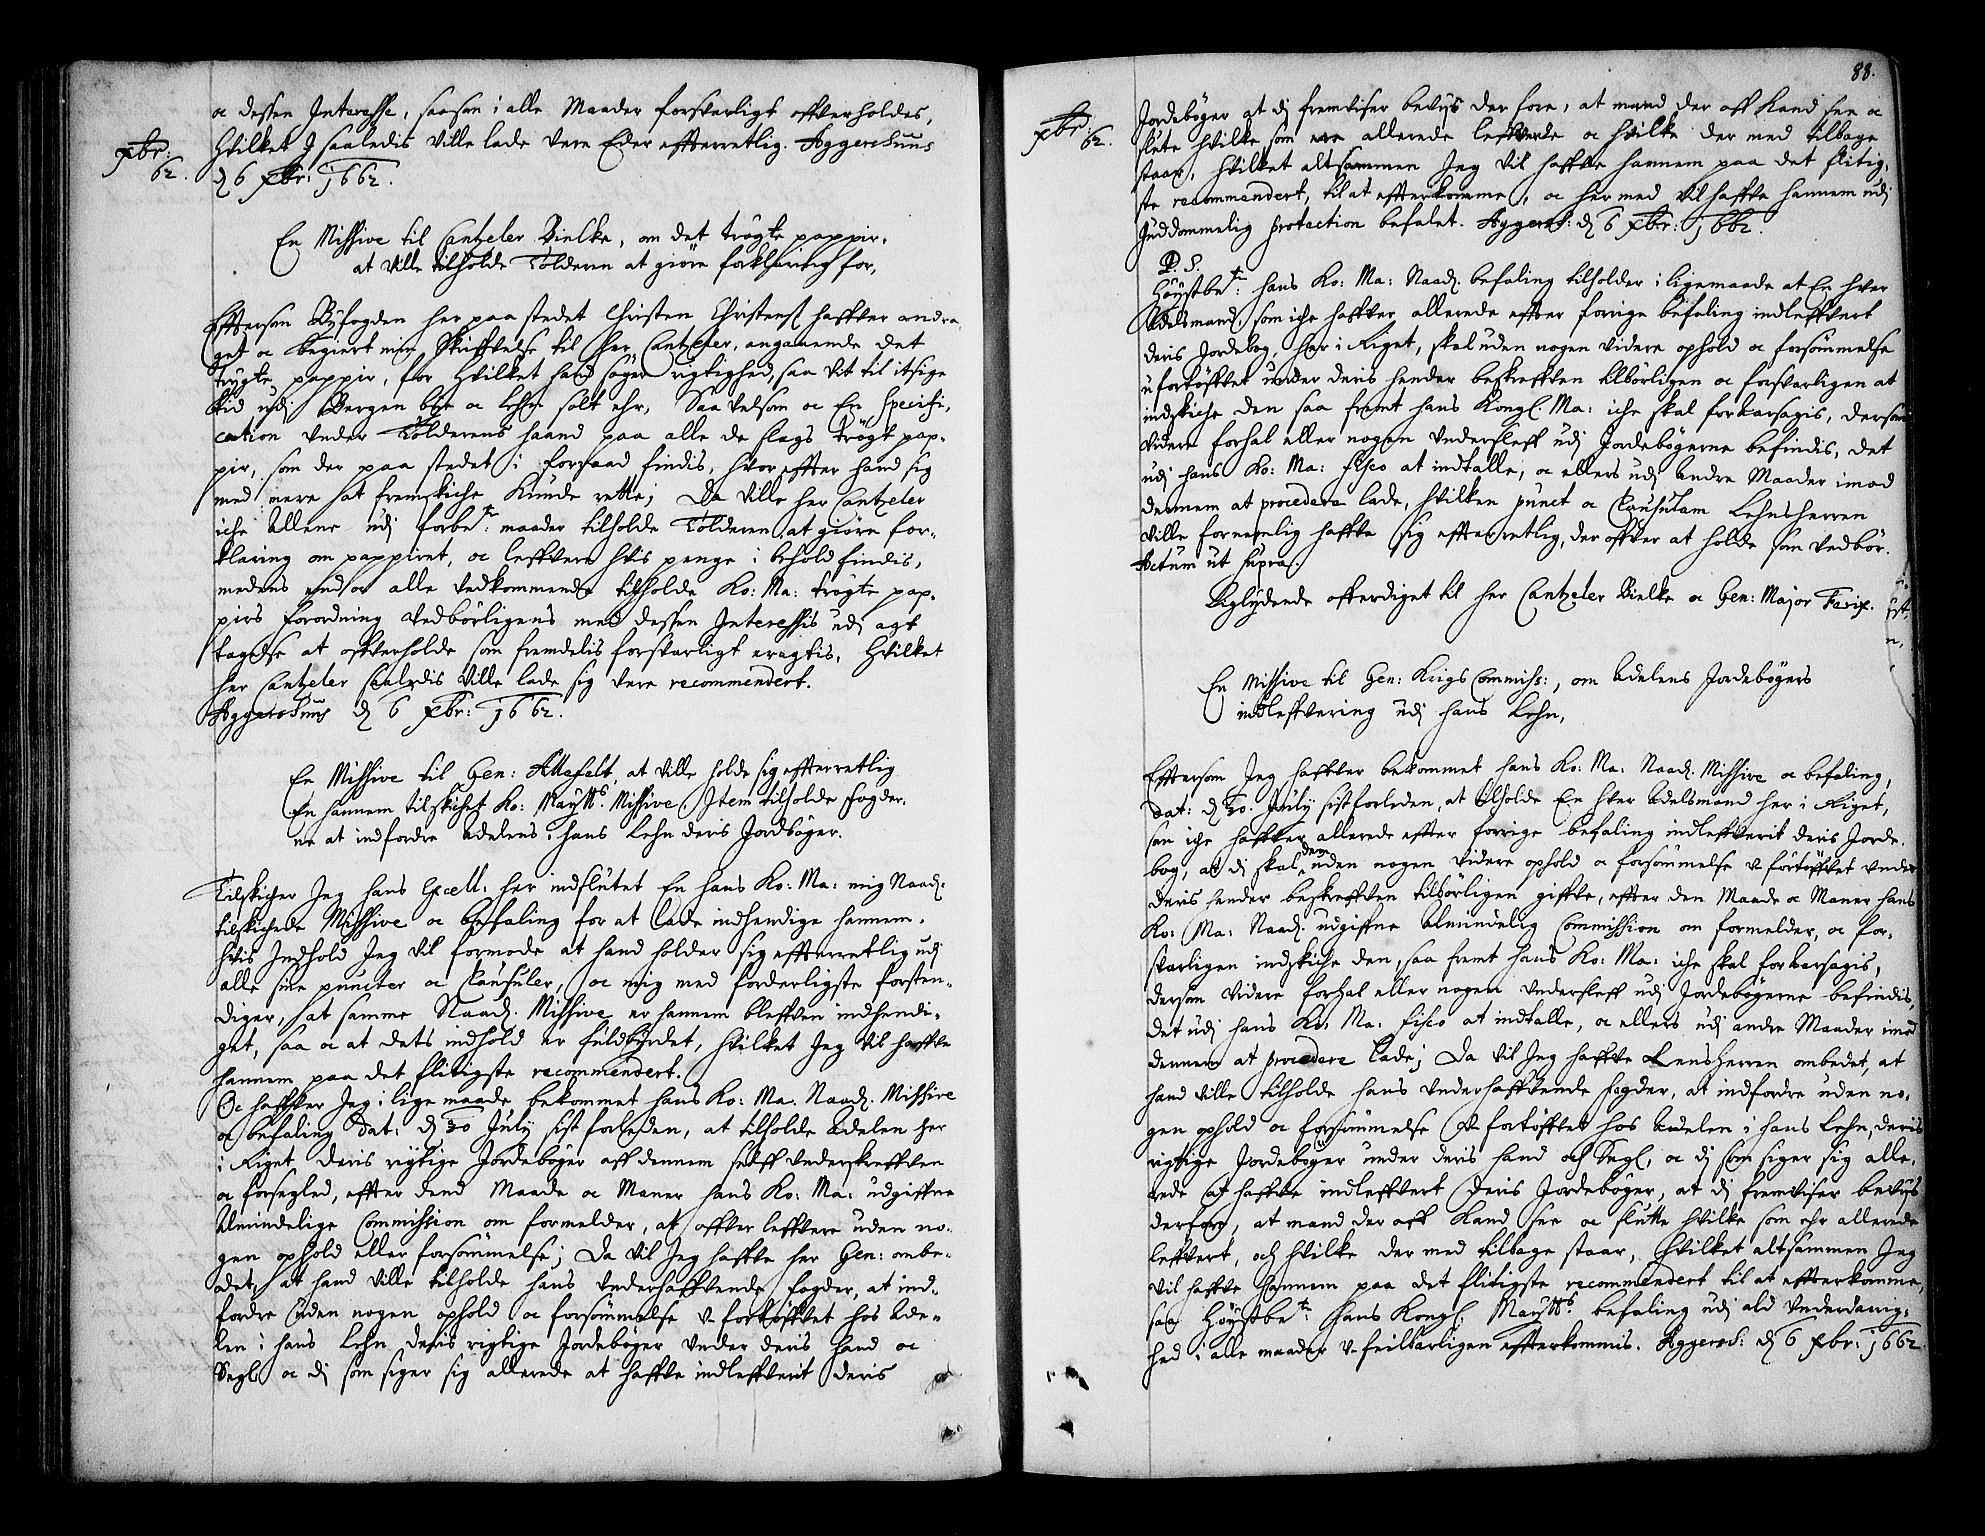 xbr:
62.
oc dessen Interesse, saasom i alle Maader forsvarligt offverholdes,
Hvilket J saaledis Ville lade Vere Eder effterretlig. Aggershuus
d 6 xbr: 1662.
En Missive til Cantzeler Bielke, om det trögte pappir,
at Ville tilholde Tolderen at giöre forklaring for,
Efftersom Byfogden her paa stedet Christen Christens haffver andra
get oc begiert min Skriffvelse til Her Cantzeler, anganende det
trögte pappir, for Hvilket hand söger rigtighed, saa Vit til itsige
tid udj Bergen bye oc Lehn solt ehr, Saa Velsom oc En Specifi,
cation Under Tolderens haand paa alle de slags trögt pap,
pir, som der paa stedet i forraad findis, hvor effter hand sig
med mere sat fremskiche Kunde rette; Da Ville her Cantzeler
iche Allene udj forbete: maader tilholde Tolderen at giöre for,
klaring om pappiret, oc leffvere hvis penge i behold findis,
medens end oc alle Vedkommende tilholde Ko: Ma: trögte pap,
pirs forordning Vedbörligens med dessen Interessis udj agt
tagelse at offverholde som fremdelis forsvarligt eragtis, Hvilket
her Cantzeler saaledis Ville lade sig Vere recommendert.
Aggershuus d 6 xbr: 1662.
En Missive til Gen: Allefelt, at Ville holde sig effterretlig
En hannem tilskichet Ko: Maytts Missive Item tilholde fogder,
ne at indfordre Adelens i hans Lehn deris Jordböger.
Tilskicher Jeg hans Excell: her indslutet En hans Ko: Ma: mig Naadz.
tilskichede Missive oc befaling for at lade indhendige hannem,
hvis Indhold Jeg Vil formode at hand holder sig effterretlig udj
alle sine puncter oc Clausuler, oc mig med forderligste forsten,
diger, at samme Naadz. Missive er hannem bleffven indhendi,
get, saa oc at dets indhold er fuldbyrdet, hvilket Jeg Vil haffve
hannem paa det flitigste recommendert.
Oc haffver Jeg i lige maade bekommet hans Ko: Ma: Naadz. Missive
oc befaling Dat: d 30 July sist forleden, at tilholde Adelen her
i Riget deris rigtige Jordeböger aff dennem selff Underskreffven
oc forsegled, effter dend Maade oc Maner hans Ko: Ma: udgiffne
Almindelige Commission om formelder, at offver leffvere uden no,
gen ophold eller forsömmelse; Da Vil Jeg haffve her Gen: ombe,
det, at hand Ville tilholde hans Underhaffvende fogder, at ind,
fordre uden nogen ophold oc forsömmelse V-fortöffvet hos Ade,
len i hans Lehn deris rigtige Jordeböger Under deris hand oc
Segl oc dj som siger sig allerede at haffve indleffverit deris
88.
xbr:
62.
Jordeböger at dj fremviser beviis der fore, at mand der aff Kand see oc
slute hvilke som ere allerede leffverde oc hvilke der med tilbage
staar, hvilket altsammen Jeg Vil haffve hannem paa det flitig,
ste recommendert, til at effterkomme, oc her med Vil haffve hannem udj
Guddommelig protection befalet. Aggersh: d 6 xbr: 1662.
P. S.
Höystbete: hans Ko: Ma: Naadz. befaling tilholder i ligemaade at En hver
Adelsmand, som iche haffver allerede effter forige befaling indleffvert
deris Jordebog, her i Riget, skal uden nogen Videre ophold oc forsömmelse
ufortöffvet under deris hender beskreffven tilbörligen oc forsvarligen at
indskiche den saa fremt hans Kongl: Ma: iche skal forarsagis, dersom
Videre forhal eller nogen Undersleff udj Jordebögerne befindis, det
udj hans Ko: Ma: fisco at indtalle, oc ellers udj Andre Maader imod
dennem at procedera lade, hvilken punct oc Clausulam Lehnsherren
Ville fornemlig haffve sig effterretlig, der offver at holde som Vedbör.
Actum ut supra.
Liglydende afferdiget til her Cantzeler Bielke oc Gen: Major Forix.
En Missive til Gen: Krigs Commiss:, om Adelens Jordebögers
indleffvering udj hans Lehn,
Efftersom Jeg haffver bekommet hans Ko: Ma: Naadz. Missive oc befaling,
Dat: d 30. July sist forleden, at tilholde En hver Adelsmand her i Riget,
som iche haffver allerede effter forrige befaling indleffverit deris Jorde,
bog, at dj skal dem uden nogen Videre ophold oc forsömmelse V-fortöffvet Under
deris hender beskreffven tilbörligen giffve, effter den Maade oc Maner hans
Ko: Ma: Naadz. udgiffne Almindelig Commission om formelder, oc for,
svarligen indskiche den, saa fremt hans Ko: Ma: iche skal forarsagis,
dersom Videre forhal eller nogen Undersleff udj Jordebögerne befindis,
det udj hans Ko: Ma: fisco at indtalle, oc ellers udj andre Maader imod
dennem at procedere lade; Da Vil Jeg haffve Lensherren ombedet, at
hand Ville tilholde hans Underhaffvende fogder, at indfordre uden no,
gen ophold oc forsömmelse V-fortöffvet hos Adelen i hans Lehn, deris
rigtige Jordeböger under deris hand och Segl, oc dj som siger sig alle,
rede at haffve indleffvert deris Jordeböger, at dj fremviser beviis
derfore, at mand der aff Kand see oc slutte hvilke som ehr allerede
leffvert, och hvilke der med tilbage staar, Hvilket altsammen Jeg
Vil haffve hannem paa det flitigste recommendert til at effterkomme,
saa Höystbete: hans Kongl: Maytts befaling udj ald Underdanig,
hed i alle maader V-feilbarligen effterkommis. Aggersh: d 6 xbr: 1662